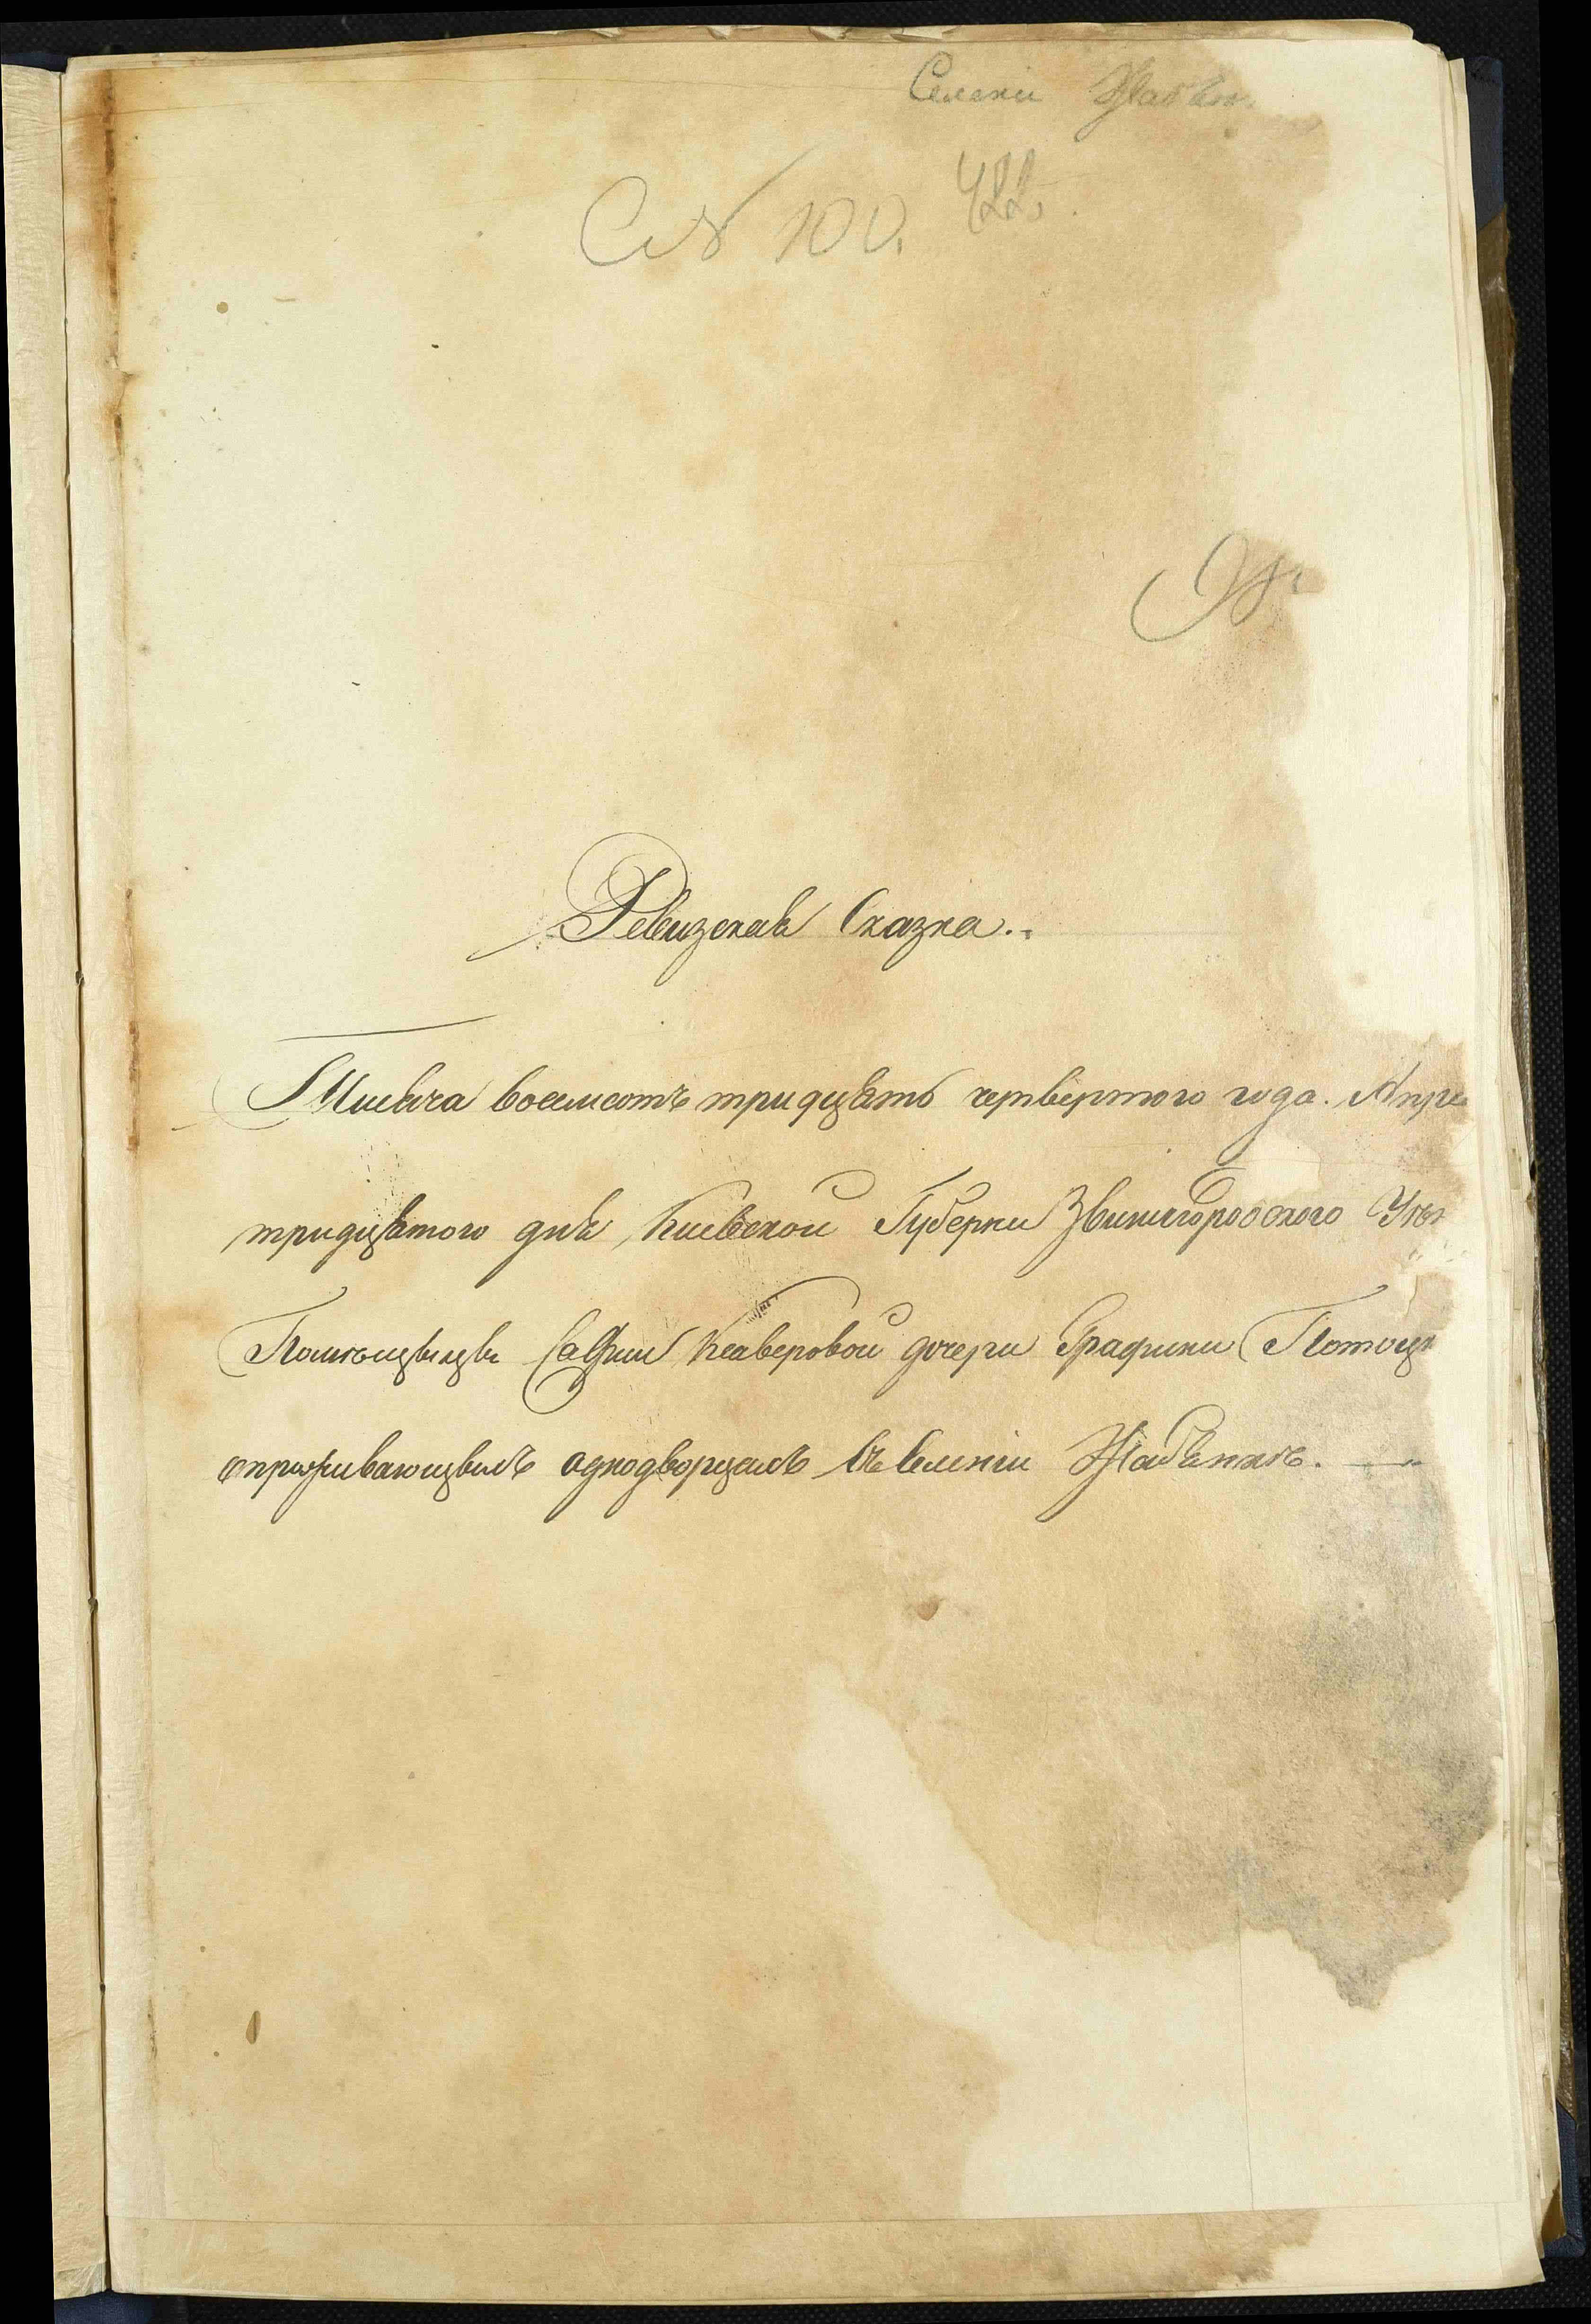 Селенiи Жабян
С № 100. 422.
Ревизская Сказка.
Тысяча восемсотъ тридцять четвертого года. Апре
тридцятого дня, Киевской Губернии Звинигородского Уез
Помѣщицы Сафии Ксаверовой дочери Графини Потоцк
о проживающыхъ однодворцахъ въ Селенiи Жабянкѣ.